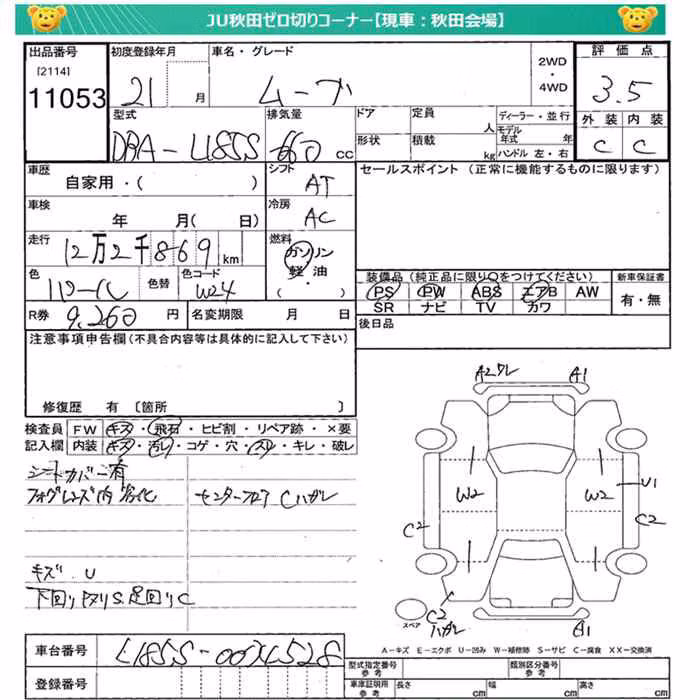 JU秋田ゼロ切りコーナー【現車：秋田会場】
出品番号 初度登録年月 車名・グレード 2WD ・ 4WD 評価点
[2114]
11053 21 月 ムーブ 3.5
型式 排気量 ドア 定員 人 ディーラー・並行 外装 内装
DBA-L185S 660 cc 形状 積載 kg モデル年式 年 ハンドル 左・右 C C
車歴 シフト セールスポイント（正常に機能するものに限ります）
自家用・（ ） AT
車検 冷房
年 月（ 日） AC
走行 燃料
12万2千869 km ガソリン
軽・油
（ ）
色 色替 色コード 装備品（純正品に限り○をつけてください） 新車保証書
パール W24 PS PW ABS エアB AW 有・無
SR ナビ TV カワ
R券 9,260 円 名変期限 月 日 後日品
注意事項申告欄（不具合内容等は具体的に記入して下さい）
修復歴 有 〔箇所 〕
検査員 FW キズ・飛石・ヒビ割・リペア跡・×要
記入欄 内装 キズ・汚レ・コゲ・穴・スレ・キレ・破レ
シートカバー有
フォグレンズ内劣化 センターフロア Cハガレ
キズ U
下回りサヌリS. 足回りC
A2ワレ A1
W2 W2 U1
C2 C2
C2
ハガレ A1
スペア
A－キズ E－エクボ U－凹み W－補修跡 S－サビ C－腐食 XX－交換済
車台番号 L185S-
登録番号 型式指定番号 参考 類別区分番号 参考
車庫証明用 参考 長さ cm 幅 cm 高さ cm